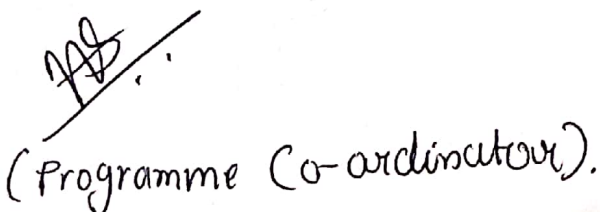 (Programme Co-ordinatour).